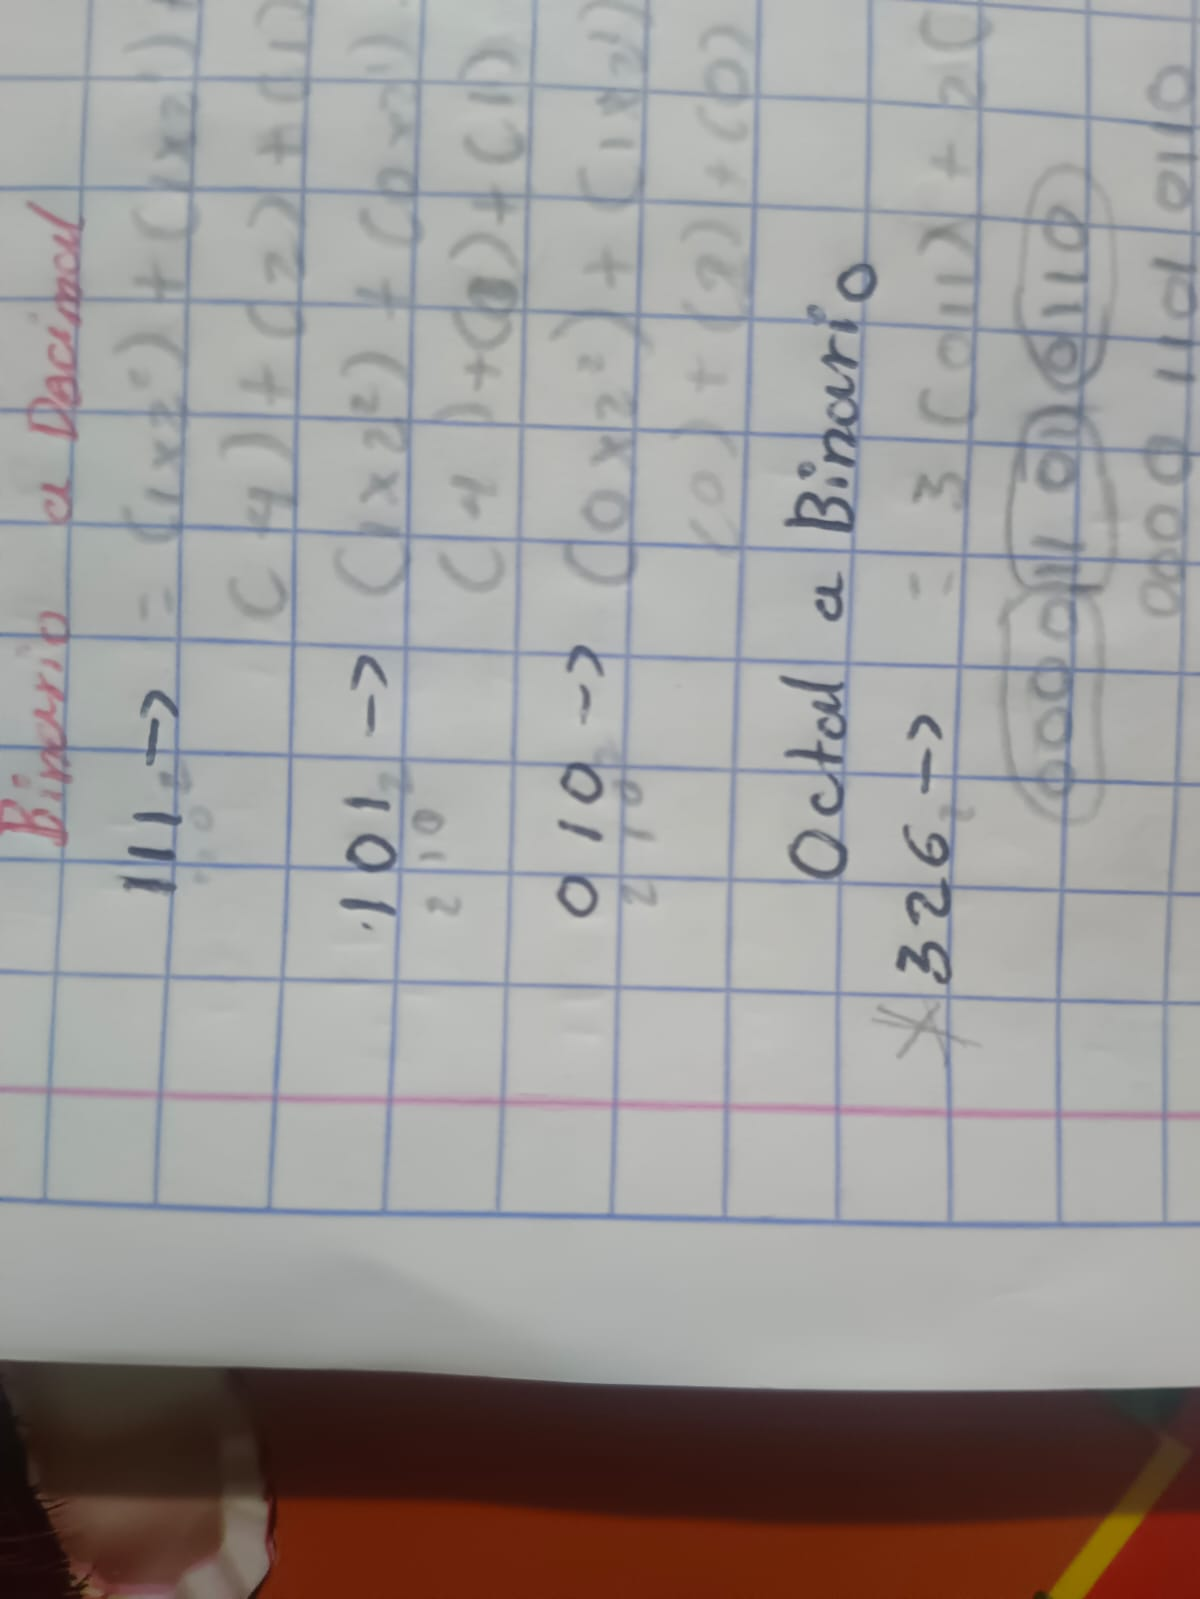 Binario a Decimal
111₂ -> = (1x2²) + (1x2¹) +
(4) + (2) + (1)
101₂ -> (1x2²) + (0x2¹)
2 1 0
(4) + (0) + (1)
010₂ -> (0x2²) + (1x2¹)
2 1 0
(0) + (2) + (0)
Octal a Binario
* 326₂ -> = 3 (011) + 2(
0000 1101 0110
0000 1101 0110